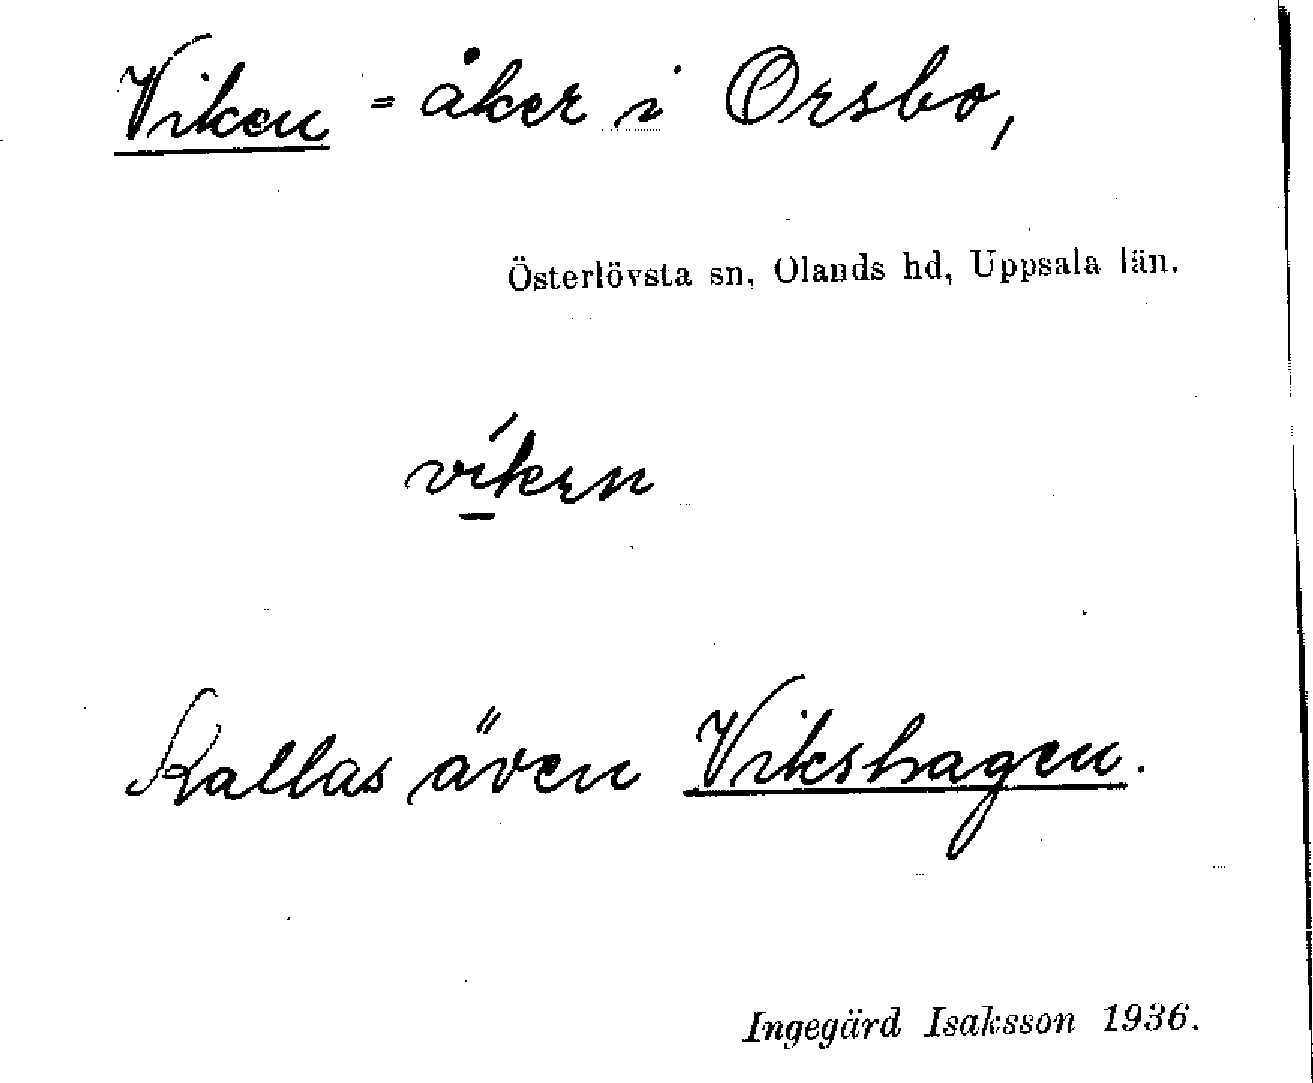 Viken = åker i Orsbo,
Österlövsta sn, Olands hd, Uppsala län.
víkɛn
Kallas även Vikshagen.
Ingegärd Isaksson 1936.